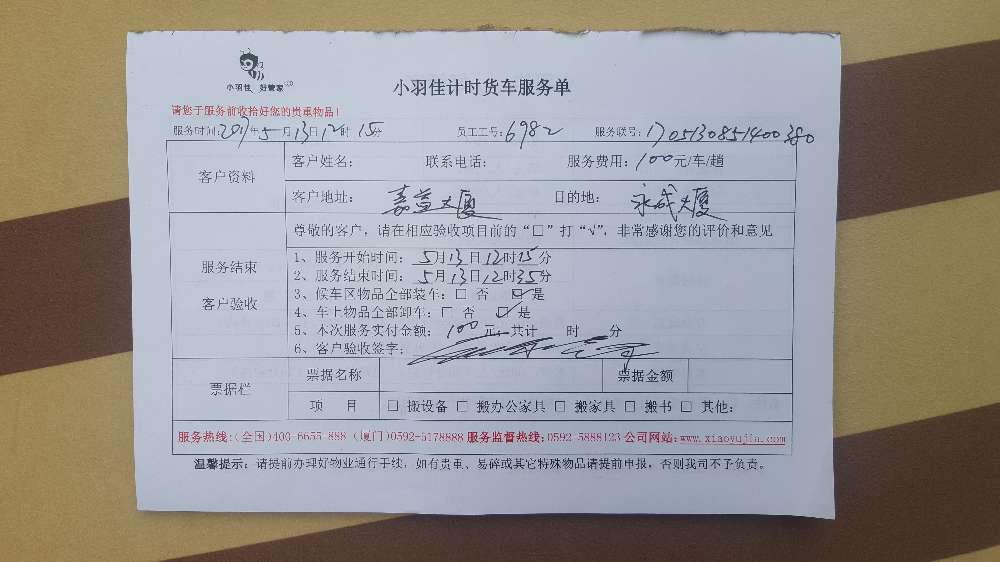 小羽佳 好管家
小羽佳计时货车服务单
请您于服务前收拾好您的贵重物品！
服务时间:2017年5月13日12时15分 员工工号:6982 服务联号:1705130851400380
客户资料
客户姓名: 联系电话: 服务费用:100元/车/趟
客户地址: 嘉益大厦 目的地: 永成大厦
服务结束
客户验收
尊敬的客户，请在相应验收项目前的“□”打“√”，非常感谢您的评价和意见
1、服务开始时间:5月13日12时15分
2、服务结束时间:5月13日12时35分
3、候车区物品全部装车:□ 否 ☑ 是
4、车上物品全部卸车:□ 否 ☑ 是
5、本次服务实付金额: 100元，共计 时 分
6、客户验收签字:
票据栏
票据名称 票据金额
项 目 □ 搬设备 □ 搬办公家具 □ 搬家具 □ 搬书 □ 其他:
服务热线:(全国)400-6655-888 (厦门)0592-5178888 服务监督热线:0592-5888123 公司网站:www.xiaoyujia.com
温馨提示: 请提前办理好物业通行手续，如有贵重、易碎或其它特殊物品请提前申报，否则我司不予负责。